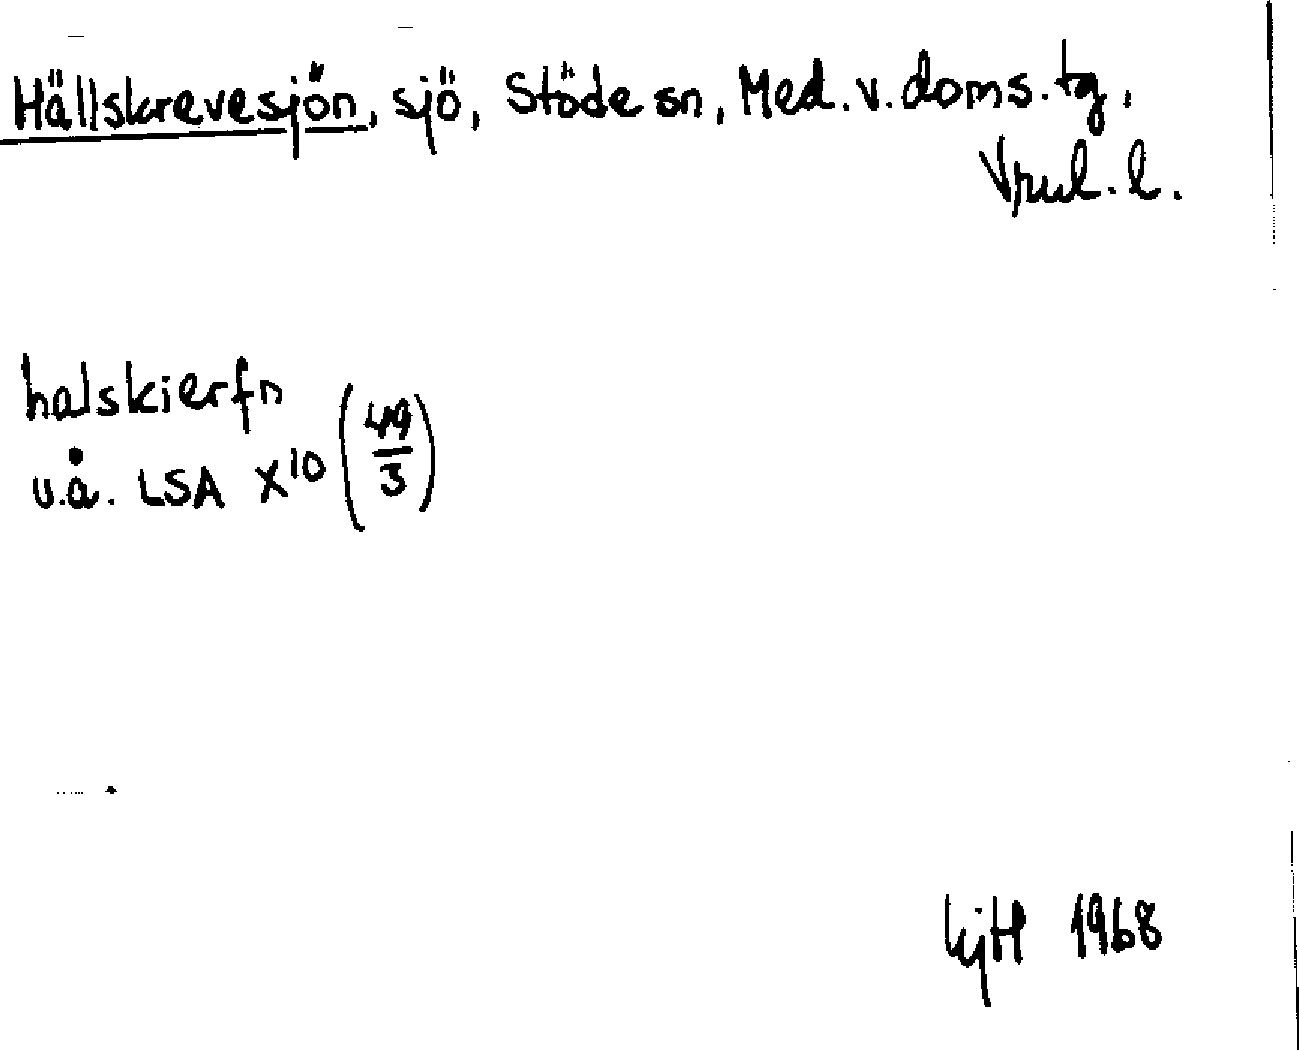 Hällskrevesjön, sjö, Stöde sn, Med. v. doms. tg,
Vnl. l.
halskierfn
u.å. LSA X¹⁰ (49/3)
1968